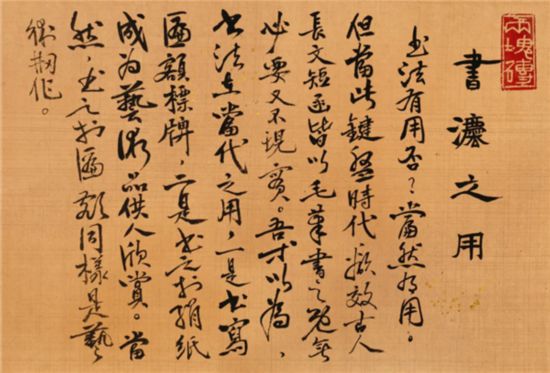 書灋之用
书法有用否？當然有用。
但當此鍵盤時代欲效古人
長文短函皆以毛筆書之既無
必要又不現實。吾以為，
书法在當代之用，一是书寫
匾額標牌，二是书之於絹紙
成为藝術品供人欣賞。當
然，书之於匾額同樣是藝
術創作。